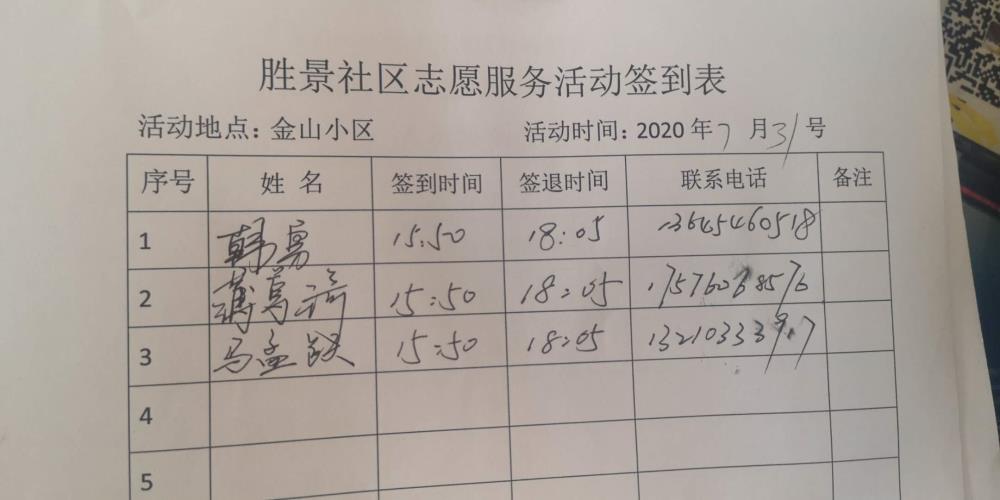 胜景社区志愿服务活动签到表
活动地点：金山小区 活动时间：2020 年 7 月 31 号
序号 姓 名 签到时间 签退时间 联系电话 备注
1 韩勇 15:50 18:05 13645460518
2 15:50 18:05
3 马孟跃 15:50 18:05
4
5